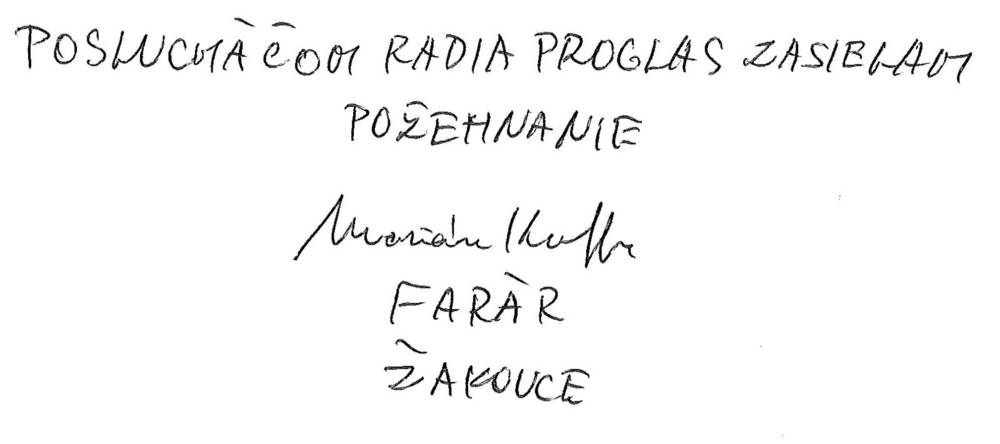 POSLUCHÁČOM RADIA PROGLAS ZASIELAM
POŽEHNANIE
Marián Kuffa
FARÁR
ŽAKOVCE